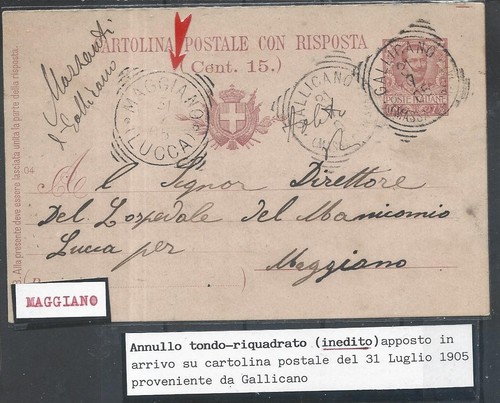 CARTOLINA POSTALE CON RISPOSTA
(Cent. 15.)
MAGGIANO
31
(LUCCA)
GALLICANO
21
GALLICANO
POSTE ITALIANE
04
B. Alla presente deve essere lasciata unita la parte della risposta.
Al Signor Direttore
Del Lospedale del Manicomio
Lucca per
Maggiano
MAGGIANO
Annullo tondo-riquadrato (inedito)apposto in
arrivo su cartolina postale del 31 Luglio 1905
proveniente da Gallicano